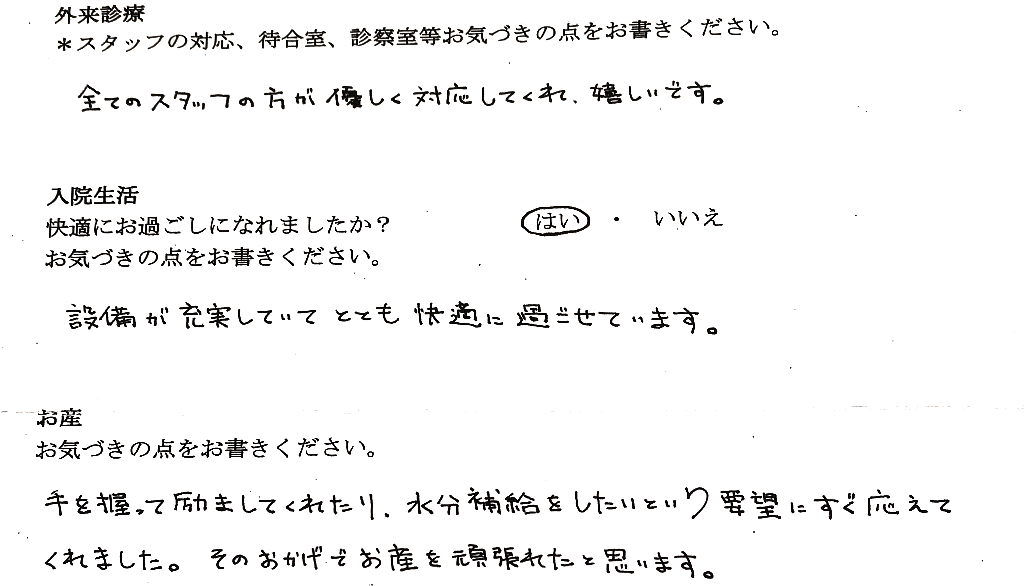 外来診療
＊スタッフの対応、待合室、診察室等お気づきの点をお書きください。
全てのスタッフの方が優しく対応してくれ、嬉しいです。
入院生活
快適にお過ごしになれましたか？　はい ・ いいえ
お気づきの点をお書きください。
設備が充実していてとても快適に過ごせています。
お産
お気づきの点をお書きください。
手を握って励ましてくれたり、水分補給をしたいという要望にすぐ応えて
くれました。そのおかげでお産を頑張れたと思います。